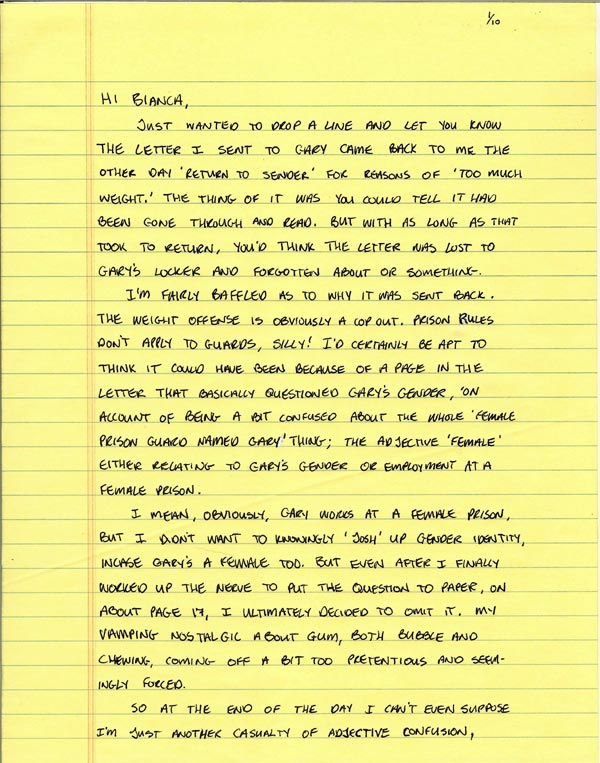 1/10
HI BIANCA,
JUST WANTED TO DROP A LINE AND LET YOU KNOW
THE LETTER I SENT TO GARY CAME BACK TO ME THE
OTHER DAY 'RETURN TO SENDER' FOR REASONS OF 'TOO MUCH
WEIGHT.' THE THING OF IT WAS YOU COULD TELL IT HAD
BEEN GONE THROUGH AND READ. BUT WITH AS LONG AS THAT
TOOK TO RETURN, YOU'D THINK THE LETTER WAS LOST TO
GARY'S LOCKER AND FORGOTTEN ABOUT OR SOMETHING.
I'M FAIRLY BAFFLED AS TO WHY IT WAS SENT BACK.
THE WEIGHT OFFENSE IS OBVIOUSLY A COP OUT. PRISON RULES
DON'T APPLY TO GUARDS, SILLY! I'D CERTAINLY BE APT TO
THINK IT COULD HAVE BEEN BECAUSE OF A PAGE IN THE
LETTER THAT BASICALLY QUESTIONED GARY'S GENDER, 'ON
ACCOUNT OF BEING A BIT CONFUSED ABOUT THE WHOLE 'FEMALE
PRISON GUARD NAMED GARY' THING; THE ADJECTIVE 'FEMALE'
EITHER RELATING TO GARY'S GENDER OR EMPLOYMENT AT A
FEMALE PRISON.
I MEAN, OBVIOUSLY, GARY WORKS AT A FEMALE PRISON,
BUT I DIDN'T WANT TO KNOWINGLY 'JOSH' UP GENDER IDENTITY,
INCASE GARY'S A FEMALE TOO. BUT EVEN AFTER I FINALLY
WORKED UP THE NERVE TO PUT THE QUESTION TO PAPER, ON
ABOUT PAGE 17, I ULTIMATELY DECIDED TO OMIT IT. MY
VAMPING NOSTALGIC ABOUT GUM, BOTH BUBBLE AND
CHEWING, COMING OFF A BIT TOO PRETENTIOUS AND SEEM-
INGLY FORCED.
SO AT THE END OF THE DAY I CAN'T EVEN SUPPOSE
I'M JUST ANOTHER CASUALTY OF ADJECTIVE CONFUSION,